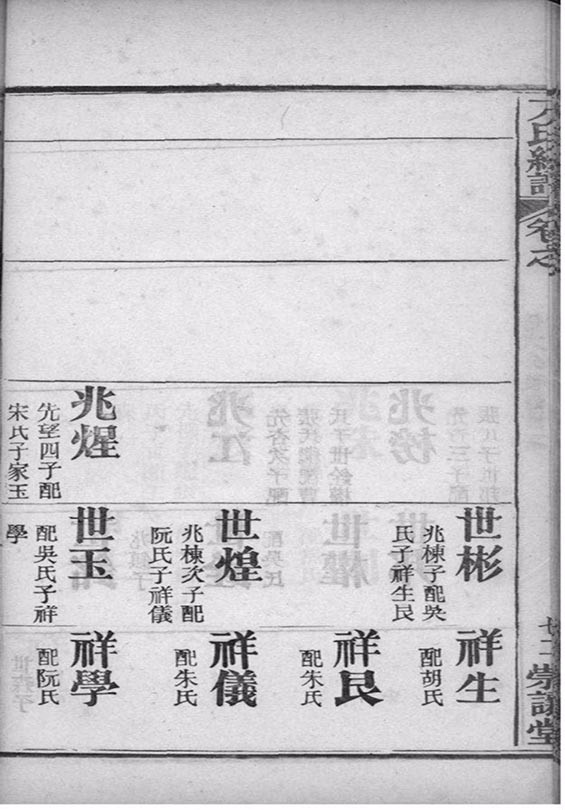 方氏統譜
卷之
堂
兆煋
先望四子配
宋氏子家玉
世彬
兆棟子配吳
氏子祥生艮
世煌
兆棟次子配
阮氏子祥儀
世玉
配吳氏子祥
學
祥生
配胡氏
祥艮
配朱氏
祥儀
配朱氏
祥學
配阮氏